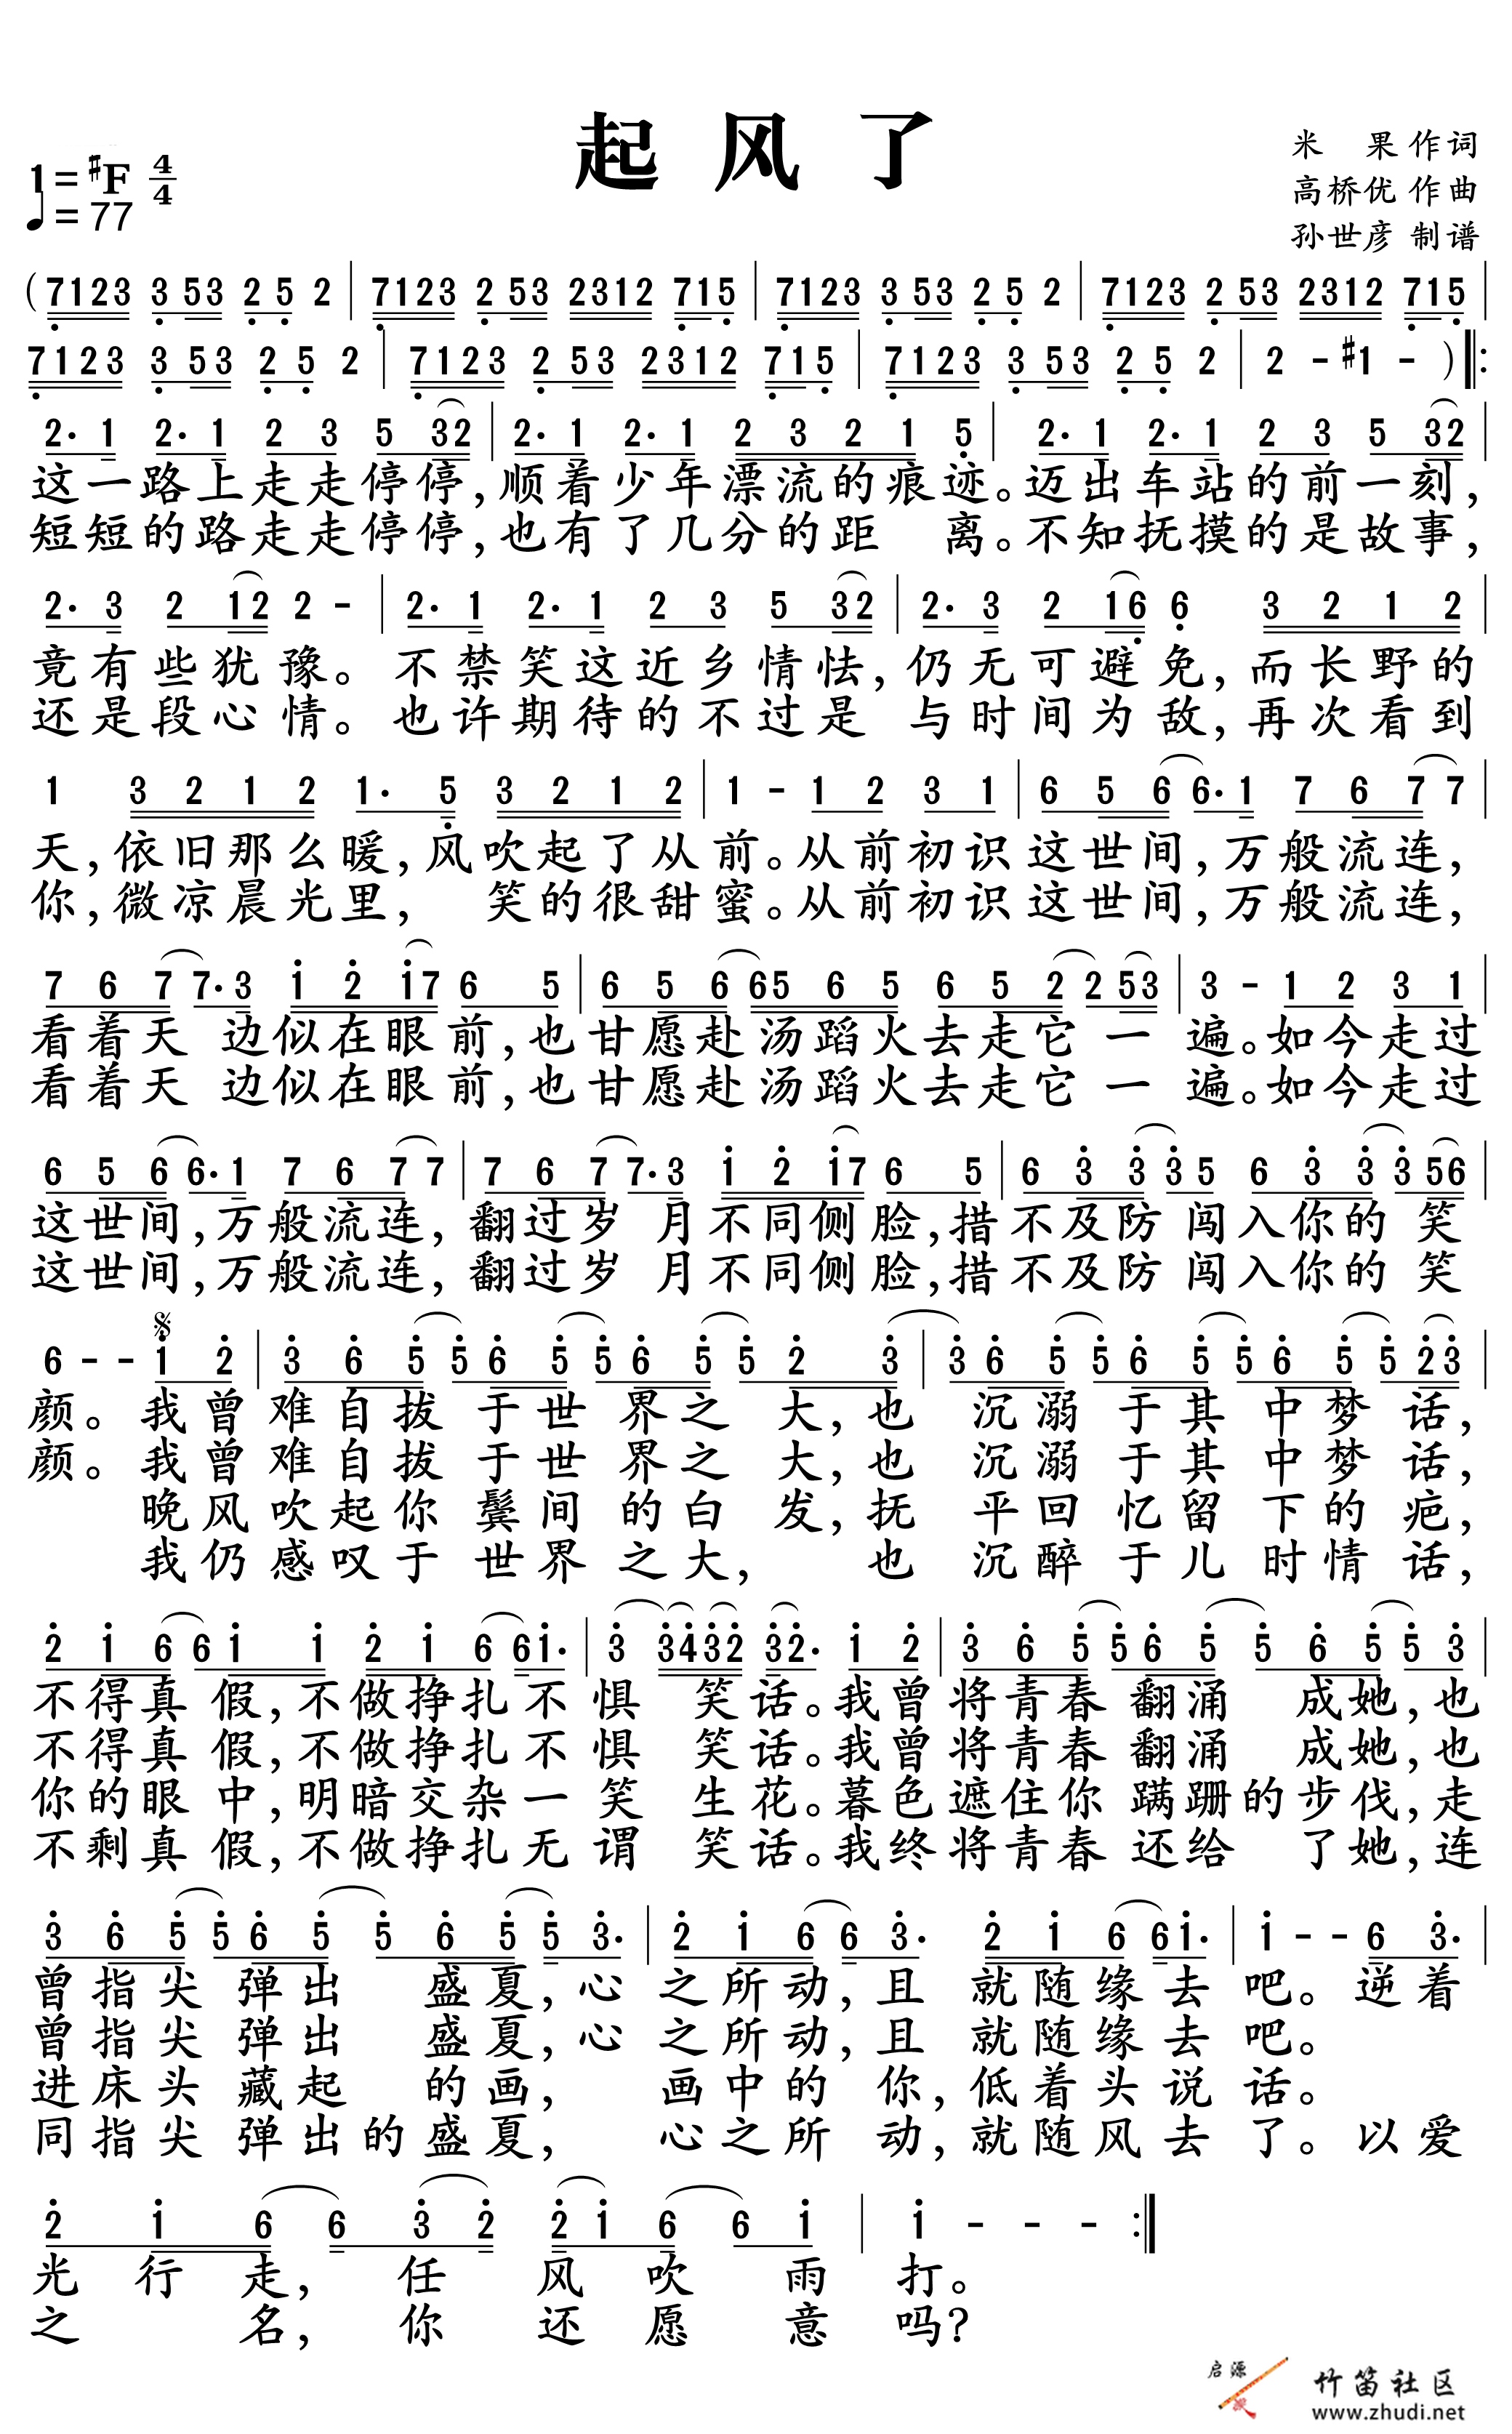 起风了
1=#F 4/4
♩=77
米 果 作词
高桥优 作曲
孙世彦 制谱
(7123 3 53 2 5 2 | 7123 2 53 2312 715 | 7123 3 53 2 5 2 | 7123 2 53 2312 715 |
7123 3 53 2 5 2 | 7123 2 53 2312 715 | 7123 3 53 2 5 2 | 2 - #1 - ) ‖:
2. 1 2. 1 2 3 5 32 | 2. 1 2. 1 2 3 2 1 5 | 2. 1 2. 1 2 3 5 32 |
这一路上走走停停,顺着少年漂流的痕迹。迈出车站的前一刻,
短短的路走走停停,也有了几分的距 离。不知抚摸的是故事,
2. 3 2 12 2 - | 2. 1 2. 1 2 3 5 32 | 2. 3 2 16 6 3 2 1 2 |
竟有些犹豫。不禁笑这近乡情怯,仍无可避免,而长野的
还是段心情。也许期待的不过是 与时间为敌,再次看到
1 3 2 1 2 1. 5 3 2 1 2 | 1 - 1 2 3 1 | 6 5 6 6. 1 7 6 7 7 |
天,依旧那么暖,风吹起了从前。从前初识这世间,万般流连,
你,微凉晨光里, 笑的很甜蜜。从前初识这世间,万般流连,
7 6 7 7. 3 1 2 17 6 5 | 6 5 6 65 6 5 6 5 2 2 53 | 3 - 1 2 3 1
看着天 边似在眼前,也甘愿赴汤蹈火去走它 一 遍。如今走过
看着天 边似在眼前,也甘愿赴汤蹈火去走它 一 遍。如今走过
6 5 6 6. 1 7 6 7 7 | 7 6 7 7. 3 1 2 17 6 5 | 6 3 3 3 5 6 3 3 3 56 |
这世间,万般流连,翻过岁 月不同侧脸,措不及防 闯入你的 笑
这世间,万般流连,翻过岁 月不同侧脸,措不及防 闯入你的 笑
6 - - 1 2 | 3 6 5 5 6 5 5 6 5 5 2 3 | 3 6 5 5 6 5 5 6 5 5 23 |
颜。我曾难自拔 于世 界之 大,也 沉溺 于其 中梦 话,
颜。我曾难自拔 于世 界之 大,也 沉溺 于其 中梦 话,
晚风吹起你 鬓间 的白 发,抚 平回 忆留 下的 疤,
我仍感叹于 世界 之大, 也 沉醉 于儿 时情 话,
2 1 6 6 1 1 2 1 6 6 1. | 3 3432 3 2. 1 2 | 3 6 5 5 6 5 5 6 5 5 3 |
不得真 假,不做挣扎不 惧 笑话。我曾将青春 翻涌 成她,也
不得真 假,不做挣扎不 惧 笑话。我曾将青春 翻涌 成她,也
你的眼 中,明暗交杂一 笑 生花。暮色遮住你 蹒跚的步伐,走
不剩真 假,不做挣扎无 谓 笑话。我终将青春 还给 了她,连
3 6 5 5 6 5 5 6 5 5 3. | 2 1 6 6 3. 2 1 6 6 1. | 1 - - 6 3. |
曾指尖 弹出 盛夏,心 之所动,且 就随缘去 吧。逆着
曾指尖 弹出 盛夏,心 之所动,且 就随缘去 吧。
进床头 藏起 的画, 画中的 你,低着头说 话。
同指尖 弹出的盛夏, 心之所 动,就随风去 了。以爱
2 1 6 6 3 2 2 1 6 6 1 | 1 - - - :‖
光 行 走, 任 风 吹 雨 打。
之 名, 你 还 愿 意 吗?
启源
竹笛社区
www.zhudi.net